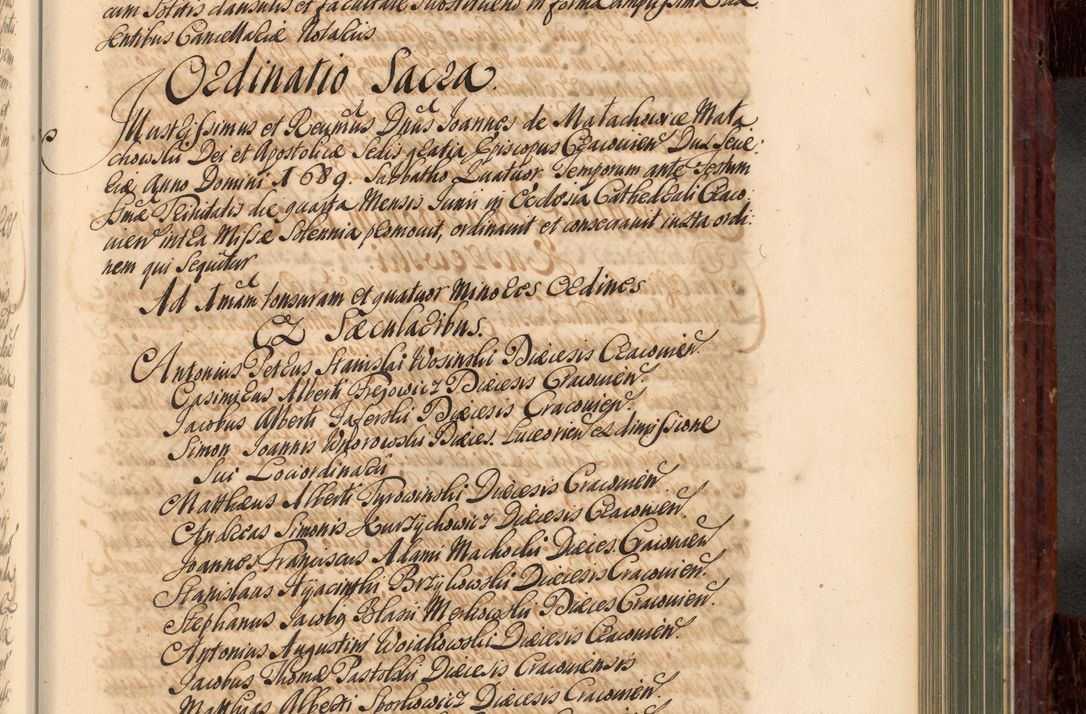 cum solitis clausulis et facultate substituendi in forma amplissima præ
sentibus Cancellariæ Notariis
Ordinatio Sacra.
Illustrissimus et Reumus Dnus Joannes de Małachowice Mała
chowski Dei et Apostolicæ Sedis gratia Episcopus Cracovien Dux Seve
riæ Anno Domini 1689. Sabbatho Quatuor Temporum ante Festum
SSmæ Trinitatis die quarta Mensis Junii in Ecclesia Cathedrali Craco
uien intra Missæ Solennia promouit, ordinauit et consecrauit iuxta ordi
nem qui sequitur
Ad 1mam tonsuram et quatuor Minores Ordines
Ex Sæcularibus.
Antonius Petrus Stanislai Wosinski Diæcesis Cracouien.
Casimirus Alberti Frezowicz Diæcesis Cracouien.
Jacobus Alberti Jaferski Diæcesis Cracouien.
Simon Joannis Wyorowski Diæces. Luceorien ex dimissione
sui Loci ordinarii
Matthæus Alberti Tyrowinski Diæcesis Cracouien
Andreas Simonis Kurzychowicz Diæcesis Cracouien.
Joannes Franciscus Adami Machocki Diæces. Cracouien
Stanislaus Hyacinthi Brzykowski Diæcesis Cracouien.
Stephanus Jacoby Blasii Merkowski Diæces Cracouien.
Antonius Augustini Woiakowski Diæcesis Cracouien.
Jacobus Thomæ Pastolski Diæcesis Cracouiensis
Matthias Alberti Sporkowicz Diæcesis Cracouien.